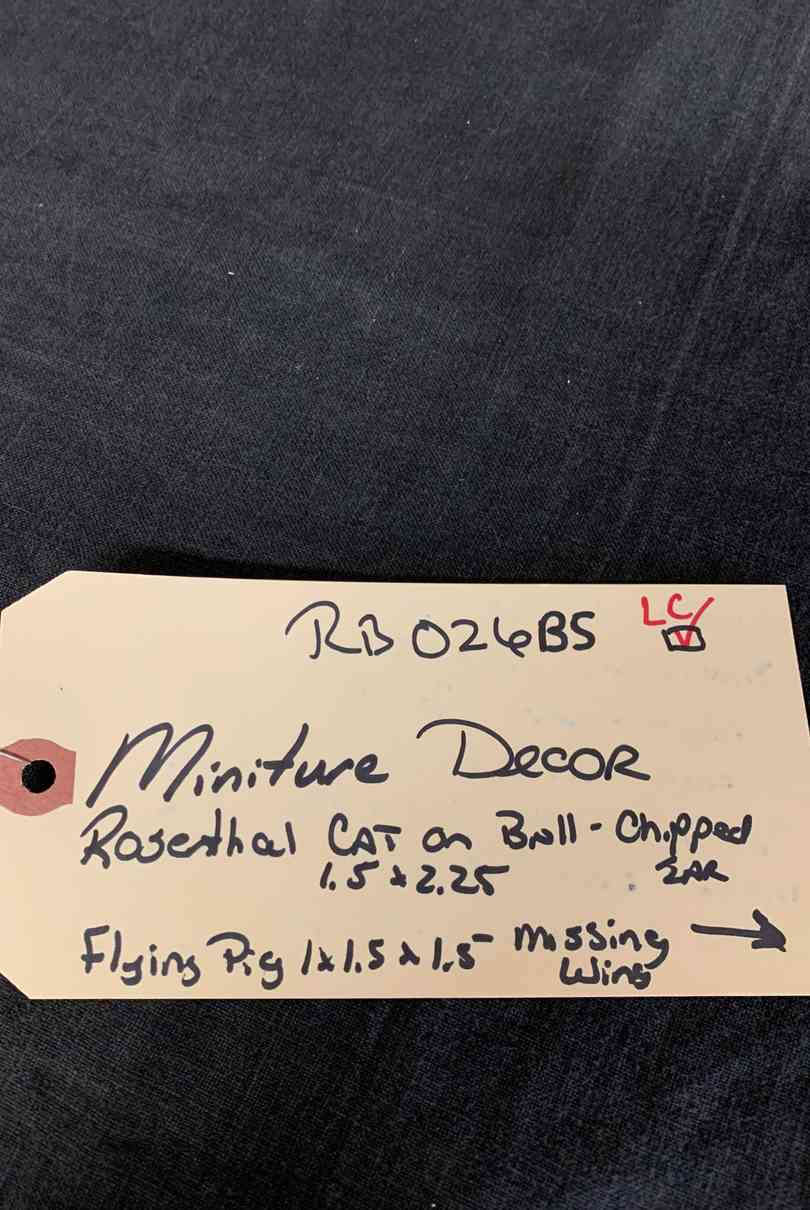 RB026BS LC/
Miniture Decor
Rosenthal CAT on Ball - Chipped
1.5 x 2.25 EAR
Flying Pig 1x1.5 x 1.5 missing →
Wing